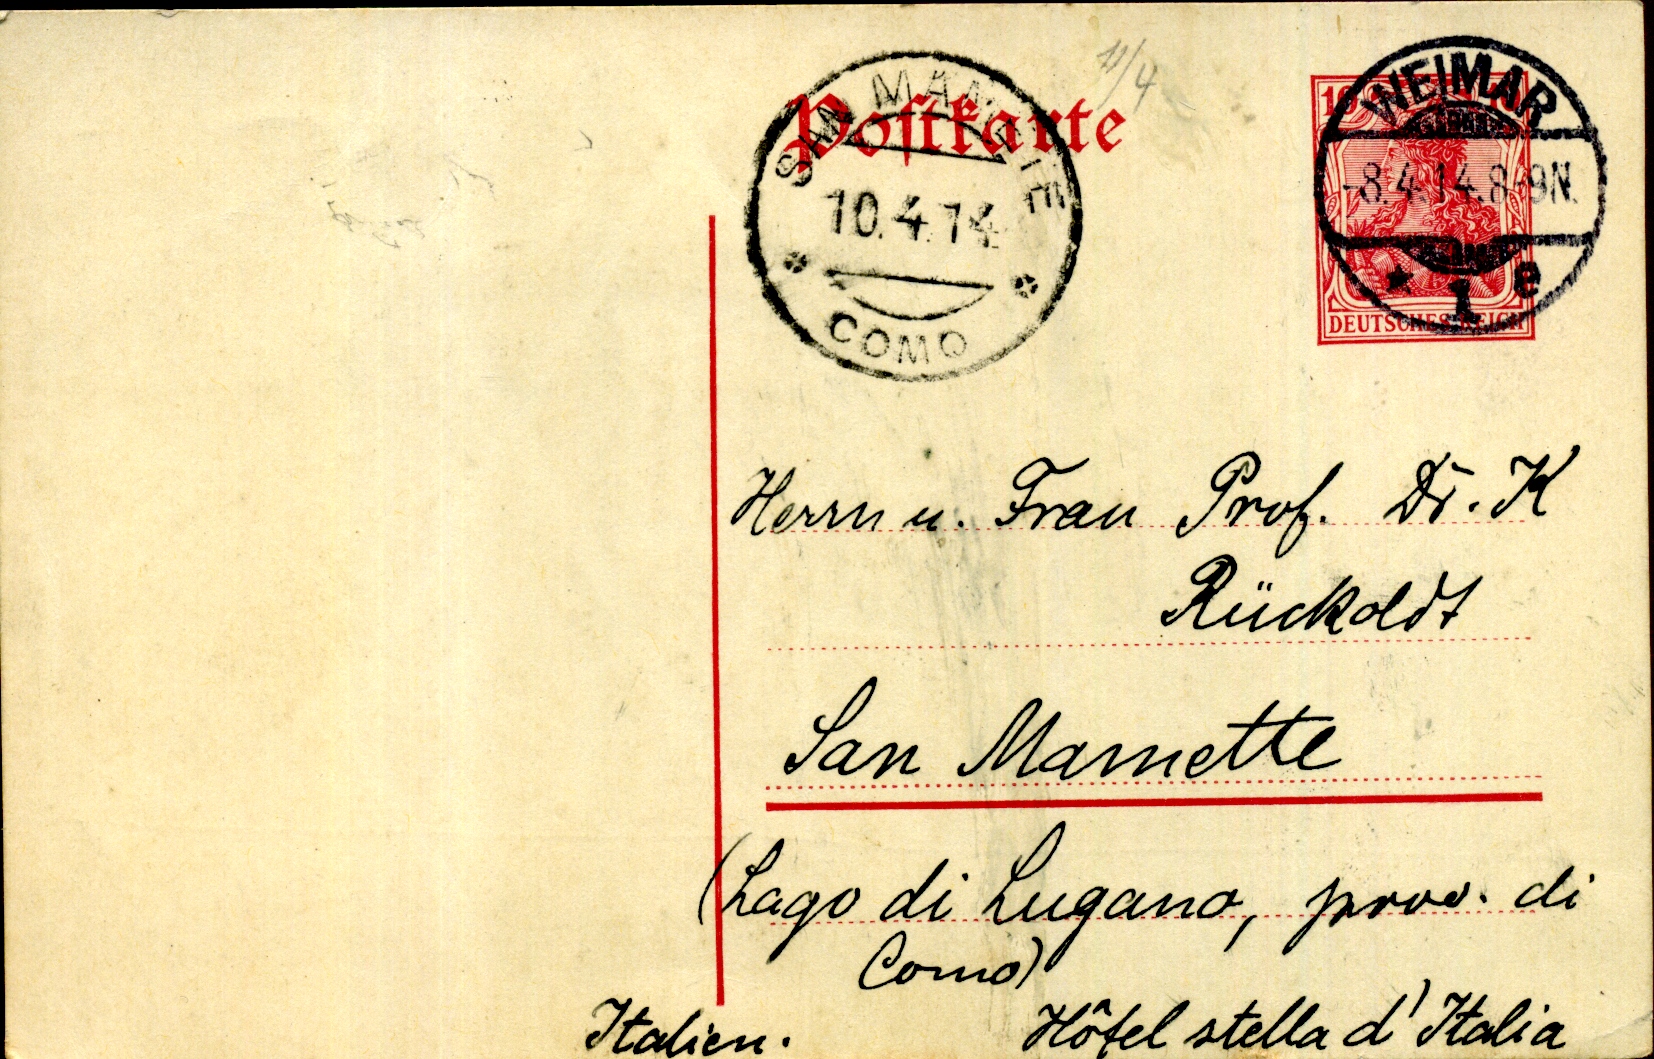 11/4
Postkarte
SAN MAMETTE
10.4.14
COMO
10
WEIMAR
-8.4.14.8-9N.
* 1 e
DEUTSCHES REICH
Herrn u. Frau Prof. Dr. K
Rückoldt
San Mamette
(Lago di Lugano, prov. di
Como)
Italien.
Hôtel stella d'Italia